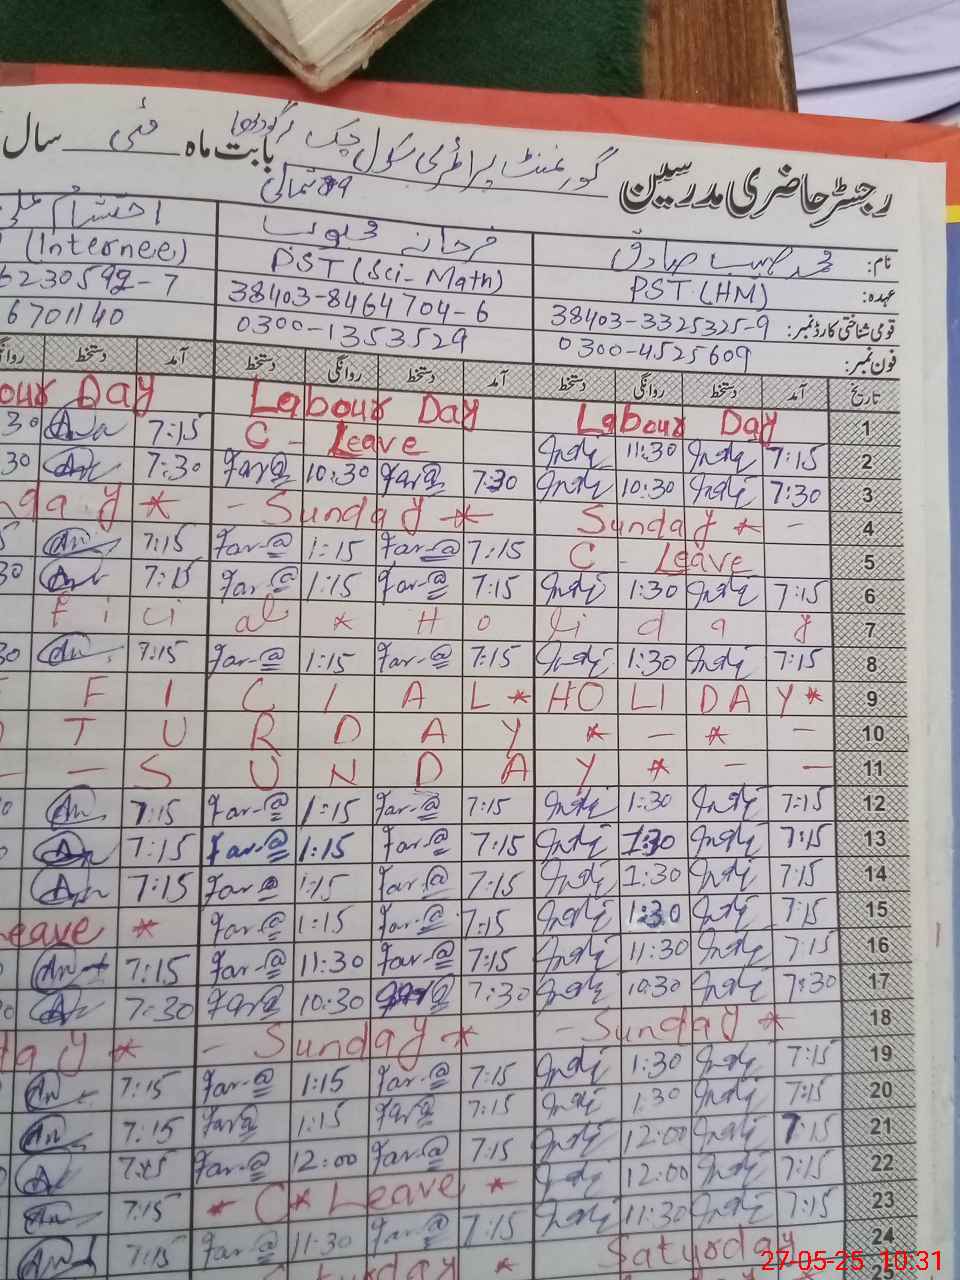 رجسٹر حاضری مدرسین گورنمنٹ پرائمری سکول چک بابت ماہ مئی سال
89 شمالی سرگودھا
نام: محمد صہیب صادق فرحانہ احتشام علی
عہدہ: PST (HM) PST (Sci-Math) (Internee)
قومی شناختی کارڈ نمبر: 38403-3325325-9 38403-8464704-6 6230592-7
فون نمبر: 0300-4525609 0300-1353529 6701140
تاریخ آمد دستخط روانگی دستخط آمد دستخط روانگی دستخط آمد دستخط
1 Labour Day Labour Day our Day
2 7:15 11:30 C - Leave 7:15 30
3 7:30 10:30 7:30 Far@ 10:30 Far@ 7:30 30
4 Sunday * - - Sunday * nday *
5 C - Leave 7:15 Far-@ 1:15 Far-@ 7:15
6 7:15 1:30 7:15 Far-@ 1:15 Far-@ 7:15 30
7 f i ci al * H o li d a y
8 7:15 1:30 7:15 Far-@ 1:15 Far-@ 7:15 30
9 F I C I A L * HO LI DA Y *
10 T U R D A Y * - * -
11 - - S U N D A Y * - -
12 7:15 1:30 7:15 Far-@ 1:15 Far-@ 7:15
13 7:15 1:30 7:15 Far-@ 1:15 Far-@ 7:15
14 7:15 1:30 7:15 Far-@ 1:15 Far-@ 7:15
15 7:15 1:30 7:15 Far-@ 1:15 Far-@ Leave *
16 7:15 11:30 7:15 Far-@ 11:30 Far-@ 7:15
17 7:30 10:30 7:30 10:30 Far@ 7:30
18 - Sunday * - Sunday * day *
19 7:15 1:30 7:15 Far-@ 1:15 Far-@ 7:15
20 7:15 1:30 7:15 Far@ 1:15 Far@ 7:15
21 7:15 12:00 7:15 Far-@ 12:00 Far-@ 7:15
22 7:15 12:00 * C * Leave * 7:15
23 7:15 11:30 7:15 Far-@ 11:30 Far-@ 7:15
24 Saturday Saturday *
25
27-05-25 10:31